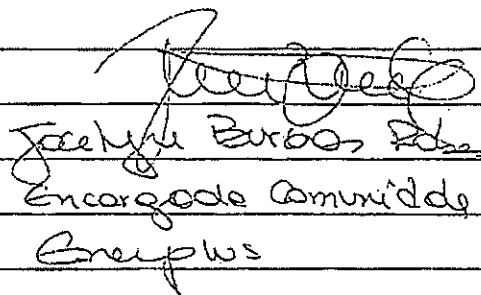 Jocelyn Burgos
Encargada Comunidade
Enerplus